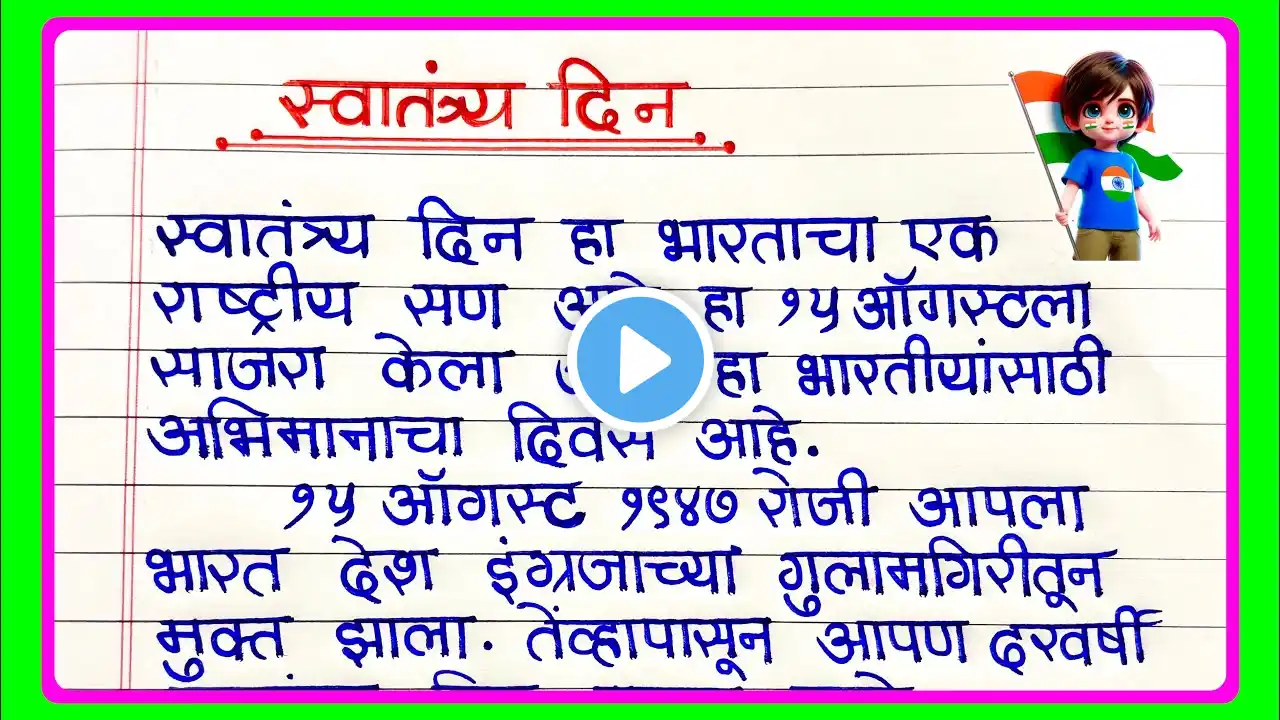 स्वातंत्र्य दिन
स्वातंत्र्य दिन हा भारताचा एक
राष्ट्रीय सण हा १५ ऑगस्टला
साजरा केला हा भारतीयांसाठी
अभिमानाचा दिवस आहे.
१५ ऑगस्ट १९४७ रोजी आपला
भारत देश इंग्रजाच्या गुलामगिरीतून
मुक्त झाला. तेंव्हापासून आपण दरवर्षी